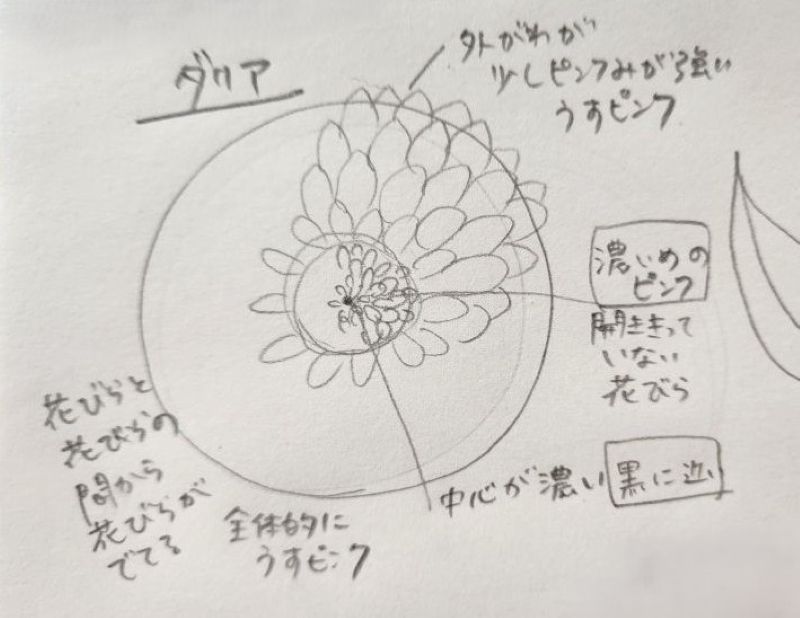 ダリア
外がわが
少しピンクみが強い
うすピンク
濃いめの
ピンク
開ききって
いない
花びら
花びらと
花びらの
間から
花びらが
でてる
全体的に
うすピンク
中心が濃い 黒に近い